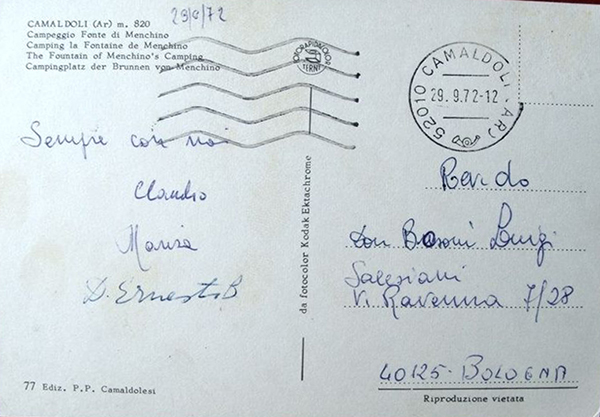 CAMALDOLI (Ar) m. 820
Campeggio Fonte di Menchino
Camping la Fontaine de Menchino
The Fountain of Menchino's Camping
Campingplatz der Brunnen von Menchino
29/9/72
FOTORAPIDACOLOR
TERNI
52010 CAMALDOLI (AR)
29.9.72-12
Sempre con noi
Claudio
Marisa
D. Ernesto B
da fotocolor Kodak Ektachrome
Rev.do
Don Bosoni Luigi
Salesiani
V. Ravenna 7/28
40125-BOLOGNA
77 Ediz. P.P. Camaldolesi
Riproduzione vietata